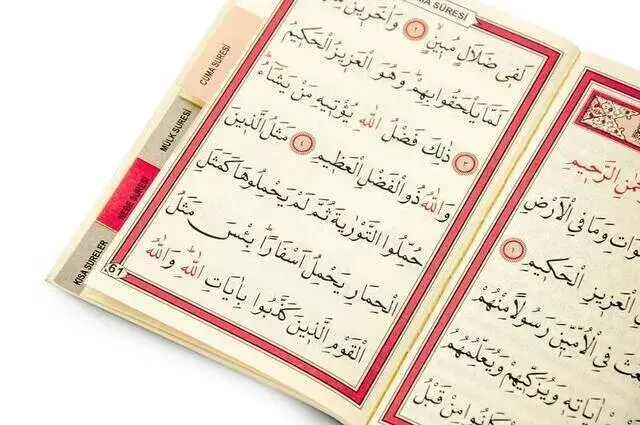 مٰنِ الرَّحِيمِ
وَاتِ وَمَا فِي الْاَرْضِ
الْعَزِيزِ الْحَكِيمِ ١
عَثَ فِي الْاُمِّيِّنَ رَسُولًا مِنْهُمْ
اٰيَاتِهِ وَيُزَكِّيهِمْ وَيُعَلِّمُهُمُ
كَانُوا مِنْ قَبْلُ
MA SÛRESİ
لَفِى ضَلَالٍ مُبِينٍ ٢ وَاٰخَرِينَ
لَمَّا يَلْحَقُوا بِهِمْ وَهُوَ الْعَزِيزُ الْحَكِيمُ
٣ ذٰلِكَ فَضْلُ اللّٰهِ يُؤْتِيهِ مَنْ يَشَاءُ
وَاللّٰهُ ذُو الْفَضْلِ الْعَظِيمِ ٤ مَثَلُ الَّذِينَ
حُمِّلُوا التَّوْرٰيةَ ثُمَّ لَمْ يَحْمِلُوهَا كَمَثَلِ
الْحِمَارِ يَحْمِلُ اَسْفَارًا بِئْسَ مَثَلُ
الْقَوْمِ الَّذِينَ كَذَّبُوا بِاٰيَاتِ اللّٰهِ وَاللّٰهُ
61
CUMA SURESİ
MÜLK SURESİ
NEBE SURESİ
KISA SURELER